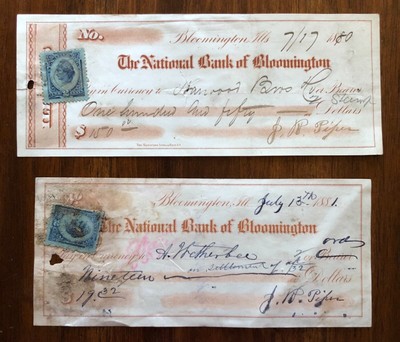 No.
Bloomington, Ills 7/17 1880
The National Bank of Bloomington
Currency to Bros
One hundred and fifty Dollars
$ 150
J. W. Piper
Bloomington, Ill July 13th 1881.
The National Bank of Bloomington
A. Wetherbee or order
in settlement of
Nineteen 32 Dollars
19 32
J. W. Piper